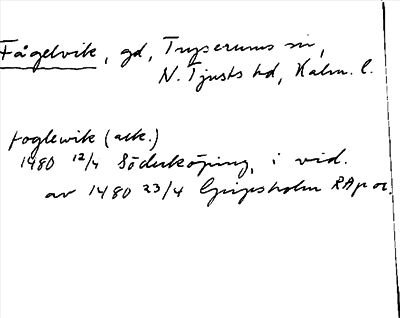 Fågelvik, gd, Tryserums sn,
N. Tjusts hd, Kalm. l.
foglewik (ack.)
1480 12/4 Söderköping, i vid.
av 1480 23/4 Gripsholm RAp or.